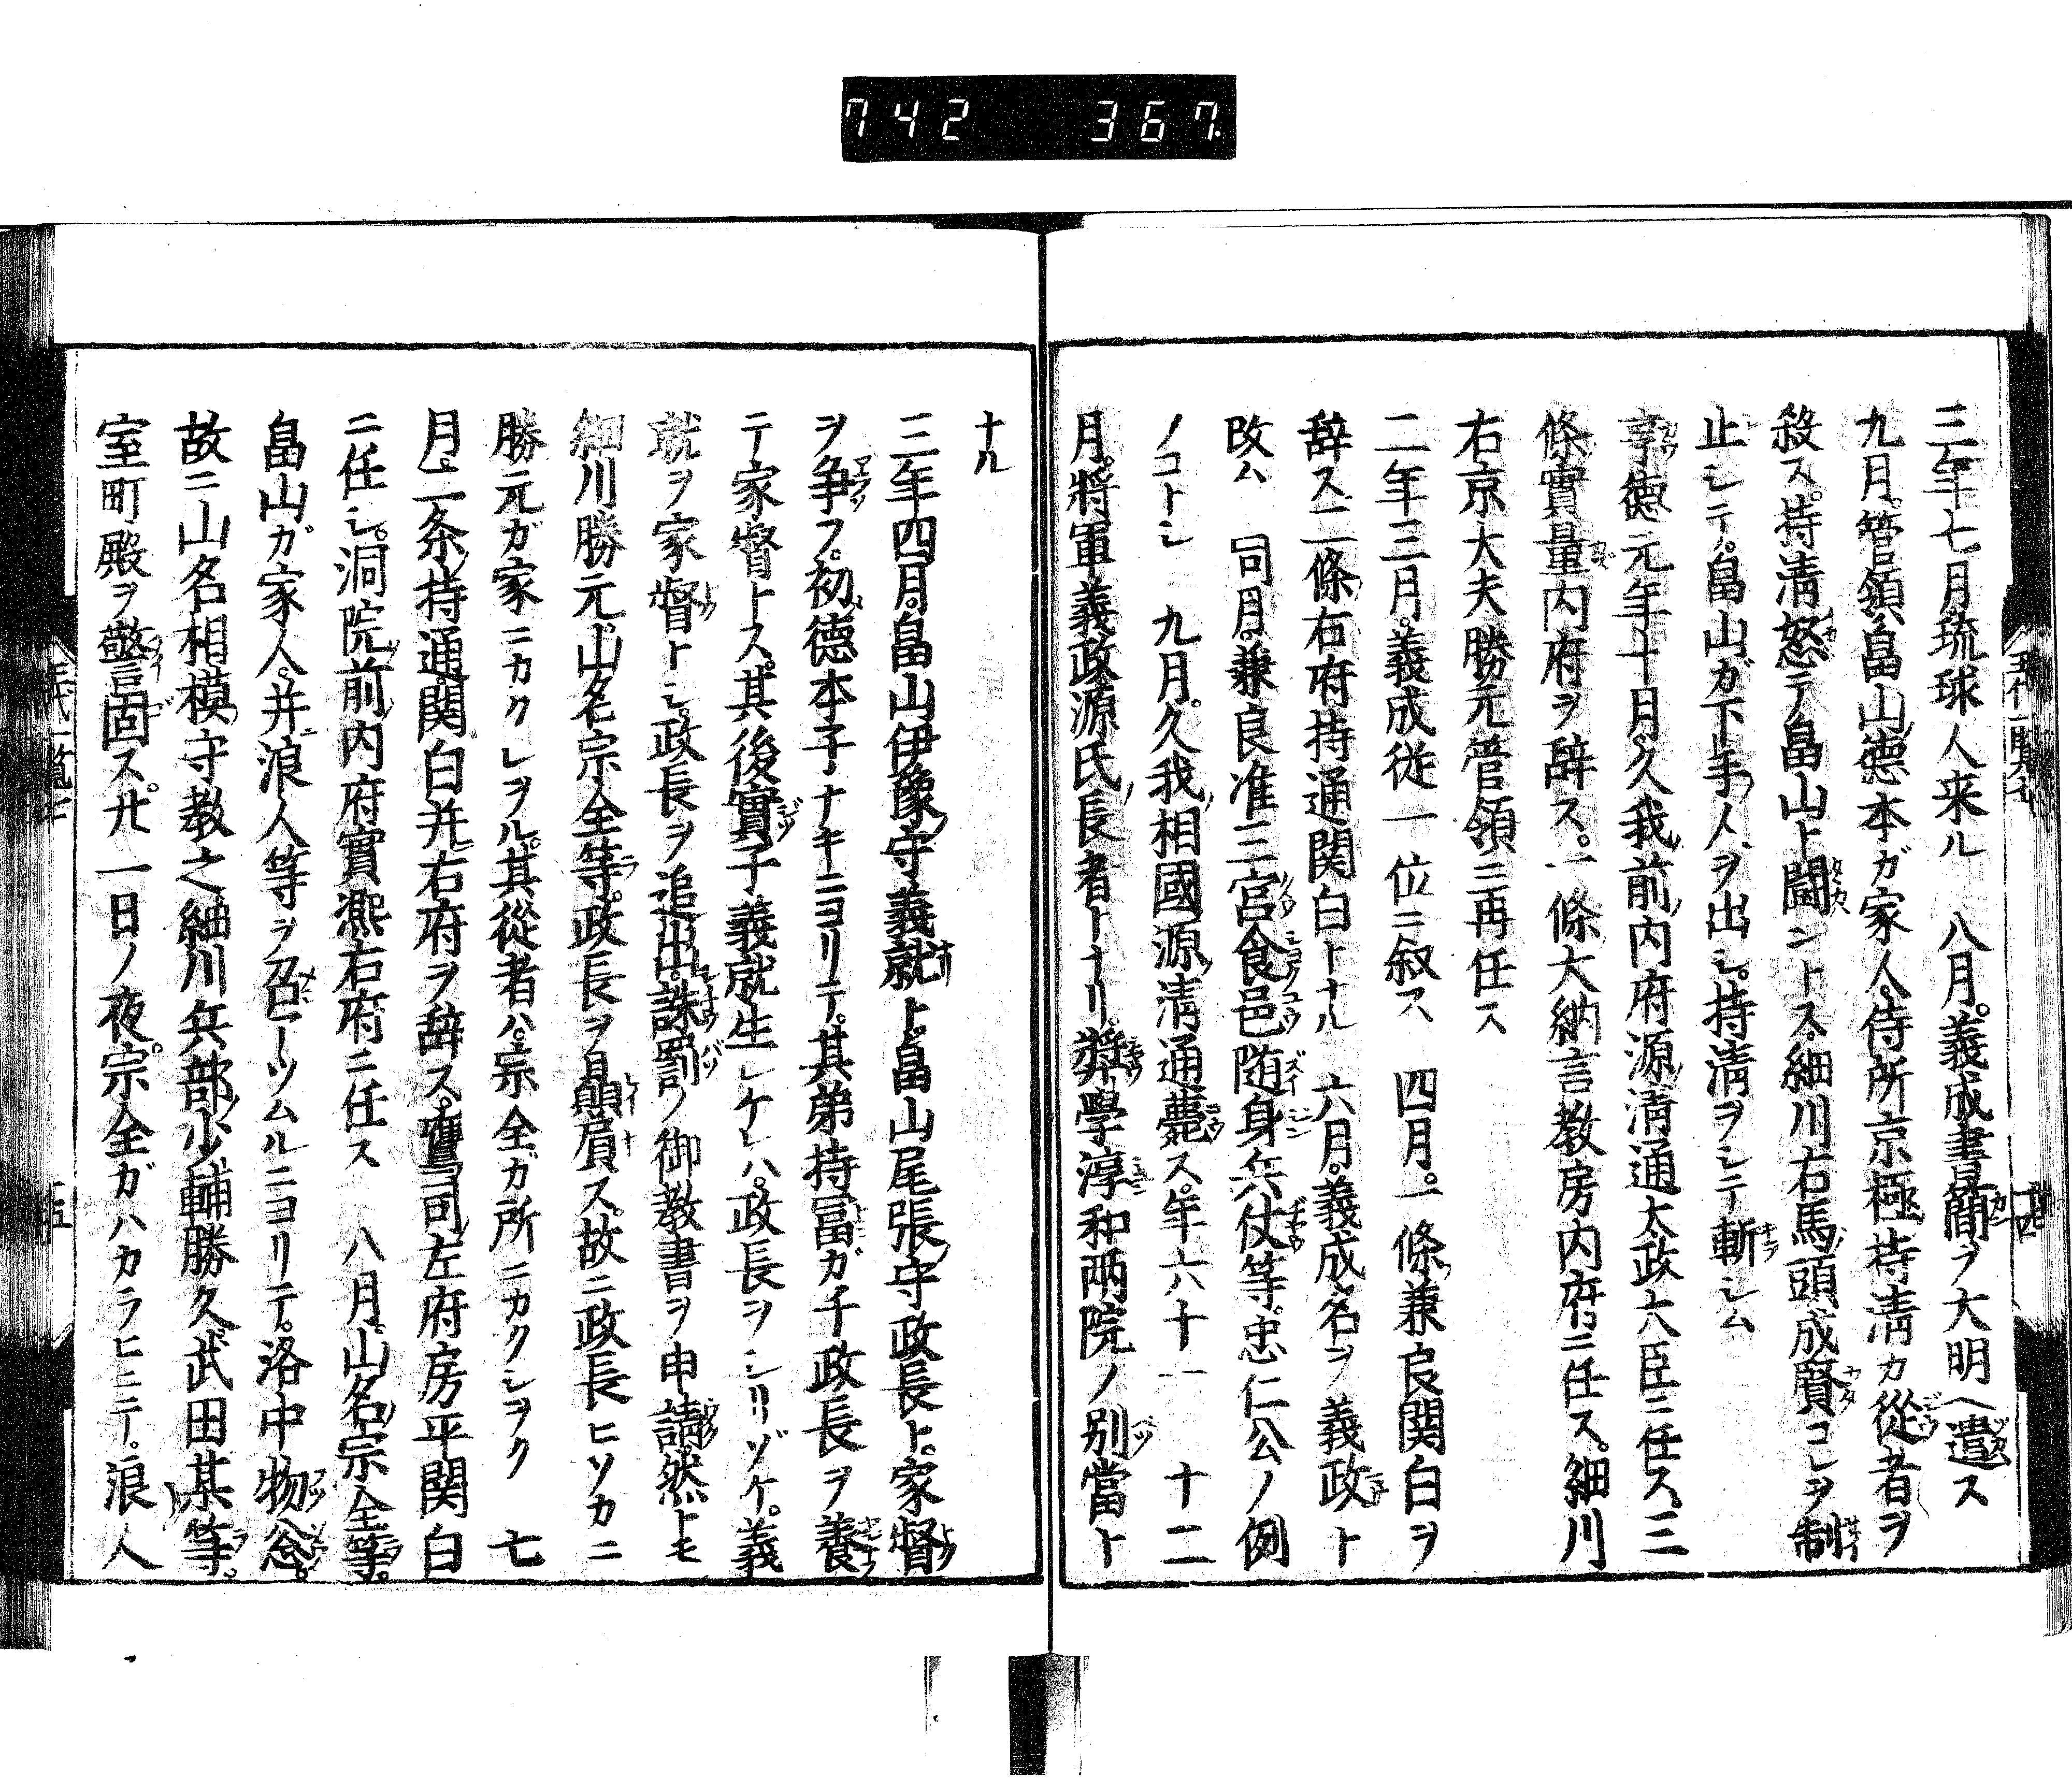 742 367
三年七月琉球人来ル 八月。義成書簡ヲ大明ヘ遣ス
九月。管領畠山德本ガ家人。侍所京極持清カ從者ヲ
殺ス。持清怒テ畠山ト鬪ントス。細川右馬頭成賢コレヲ制
止シテ。畠山ガ下手人ヲ出シ。持清ヲシテ斬シム
享德元年十月。久我前内府源清通太政大臣ニ任ス。三
條實量内府ヲ辞ス。一條大納言教房内府ニ任ス。細川
右京大夫勝元管領ニ再任ス
二年三月。義成従一位ニ叙ス 四月。一條兼良関白ヲ
辞ス。二條右府持通関白トナル 六月。義成名ヲ義政ト
改ム 同月。兼良准三宮食邑随身兵仗等。忠仁公ノ例
ノコトシ 九月。久我相國源清通薨ス。年六十一 十二
月。將軍義政源氏長者トナリ。奬學淳和兩院ノ別當ト
ナル
三年四月。畠山伊豫守義就ト。畠山尾張守政長ト。家督
ヲ争フ。初德本子ナキニヨリテ。其弟持冨ガ子政長ヲ養
テ家督トス。其後實子義就生レケレハ。政長ヲシリゾケ。義
就ヲ家督トシ。政長ヲ追出。誅罰ノ御教書ヲ申請。然トモ
細川勝元。山名宗全等。政長ヲ贔屓ス。故ニ政長ヒソカニ
勝元ガ家ニカクレヲル。其從者ハ。宗全ガ所ニカクシヲク 七
月。二条持通関白并右府ヲ辞ス。鷹司左府房平関白
ニ任シ。洞院前内府實熙右府ニ任ス 八月。山名宗全等。
畠山ガ家人。并浪人等ヲ召アツムルニヨリテ。洛中物忩。
故ニ山名相模守教之。細川兵部少輔勝久武田某等。
室町殿ヲ警固ス。廿一日ノ夜。宗全ガハカラヒニテ。浪人